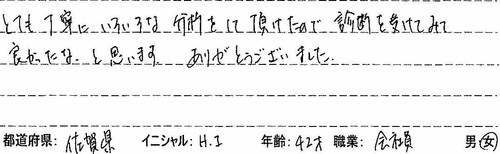 とても丁寧にいろいろな分析をして頂けたので診断を受けてみて
良かったな。と思います。 ありがとうございました。
都道府県: 佐賀県 イニシャル: H.I 年齢: 42才 職業: 会社員 男・女